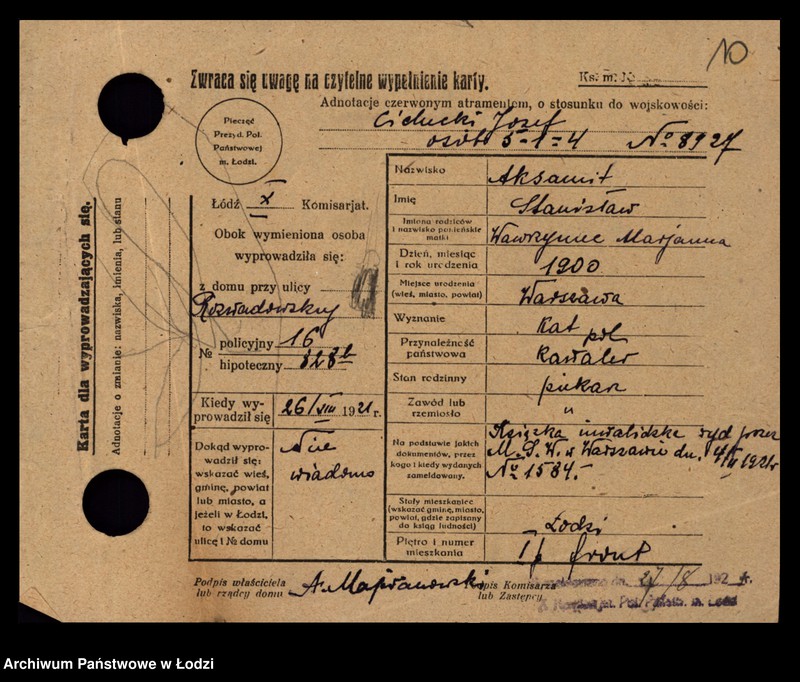 10
Zwraca się uwagę na czytelne wypełnienie karty.
Ks. m. №
Adnotacje czerwonym atramentem, o stosunku do wojskowości:
Cichucki Józef
osób 5-1=4 № 8927
Pieczęć
Prezyd. Pol.
Państwowej
m. Łodzi.
Karta dla wyprowadzających się.
Adnotacje o zmianie: nazwiska, imienia, lub stanu
Łódź X Komisarjat.
Obok wymieniona osoba
wyprowadziła się:
z domu przy ulicy
Rozwadowskiej
№ policyjny 16
hipoteczny 828
Kiedy wyprowadził się 26/VIII 1921 r.
Dokąd wyprowadził się:
wskazać wieś,
gminę, powiat
lub miasto, a
jeżeli w Łodzi,
to wskazać
ulicę i № domu
Nie
wiadomo
Nazwisko Aksamit
Imię Stanisław
Imiona rodziców
i nazwisko panieńskie
matki
Wawrzyniec Marjanna
Dzień, miesiąc
i rok urodzenia 1900
Miejsce urodzenia
(wieś, miasto, powiat) Warszawa
Wyznanie Kat
Przynależność
państwowa pol
Stan rodzinny Kawaler
Zawód lub
rzemiosło piekarz
"
Na podstawie jakich
dokumentów, przez
kogo i kiedy wydanych
zameldowany.
Książka inwalidzka wyd przez
M. S. W. w Warszawie dn. 1921 r
№ 1584.-
Stały mieszkaniec
(wskazać gminę, miasto,
powiat, gdzie zapisany
do ksiąg ludności)
Łodzi
Piętro i numer
mieszkania I p front
Podpis właściciela
lub rządcy domu A. Majranowski
Podpis Komisarza
lub Zastępcy
dn. 27/8 1921 r.
X Pol. Państw. m. Łodzi
Archiwum Państwowe w Łodzi